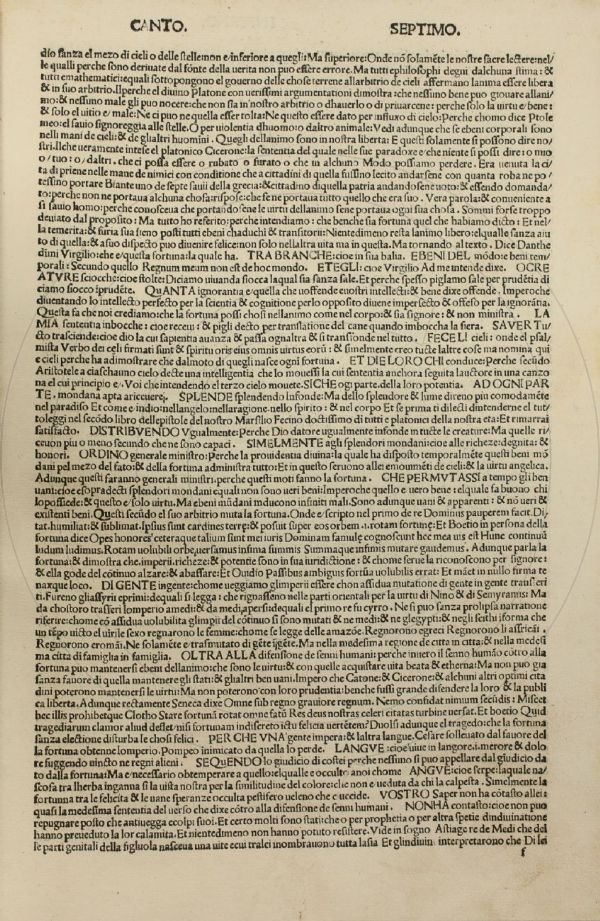 CANTO. SEPTIMO.
dio sanza el mezo di cieli o delle stelle: non e inferiore a quegli: Ma superiore: Onde nō solamēte le nostre sacre lectere: nel/
le qualli perche sono deriuate dal fonte della uerita non puo essere errore. Ma tutti e philosophi degni dalchuna stima: &
tutti e mathematici: equali sottopongono el gouerno delle chose terrene allarbitrio de cieli affermano lanima essere libera
& in suo arbitrio. Il perche el diuino Platone con uerissimi argumentationi dimostra: che nessuno bene puo giouare allani/
mo: & nessuno male gli puo nocere: che non sia in nostro arbitrio o dhauerlo o di priuarcene: perche solo la uirtu e bene:
& solo el uitio e male: Ne ci puo nequella esser tolta: Ne questo essere dato per influxo di cielo: Perche chomo dice Ptole
meo: el sauio signoreggia alle stelle. O per uiolentia dhuomo: o daltro animale: Vedi adunque che se e beni corporali sono
nelli mani de cieli: & de glialtri huomini. Quegli dellanimo sono in nostra liberta: E questi solamente si possono dire no/
stri. Il che ueramente intese el platonico Cicerone: la sententia del quale nelle sue paradoxe e che niente si possi dire: o mio
o/ tuo: o/ daltri. che ci possa essere o rubato o furato o che in alchuno Modo possiamo perdere. Era uenuta la ci/
ta di priene nelle mane de nimici con conditione che a cittadini di quella fussino lecito andarsene con quanta roba ne po/
tessino portare Biante uno de septe sauii della grecia: & cittadino di quella patria andandosene uoto: & essendo domanda/
to: perche non ne portaua alchuna chosa: rispose: che sene portaua tutto quello che era suo. Vera parola: & conueniente a
si sauio homo: perche conosceua che portandosene le uirtu dellanimo sene portaua ogni sua chosa. Sommi forse troppo
deuiato dal proposito: Ma tutto ho referito: perche intendiamo: che benche sia fortuna quel che habbiamo dicto: Et nel/
la temerita: & furia sua sieno posti tutti e beni chaduchi & transitorii: Nientedimeno resta lanimo libero: el quale sanza aiu
to di quella: & a suo dispecto puo diuenire felice: non solo nellaltra uita ma in questa. Ma tornando al texto. Dice Danthe
dimi Virgilio: che e questa fortuna: la quale ha. TRA BRANCHE: cioe in sua balia. E BENI DEL modo: e beni tem/
porali: Secundo quello Regnum meum non est de hoc mondo. ET EGLI: cioe Virgilio Ad me intende dixe. O CRE
ATVRE sciocche: cioe stolte: Diciamo uiuanda sciocca la qual sia sanza sale. Et perche spesso pigliamo sale per prudētia di
ciamo sciocco i̅prudēte. QVANTA ignorantia e quella che uoffende e uostri intellecti: & bene dixe offende. Imperoche
diuentando lo intellecto perfecto per la scientia & cognitione per lo opposito diuene impersecto & offeso per la ignorātia.
Questa fa che noi crediamo: che la fortuna possi chosi nellanimo come nel corpo: & sia signore: & non ministra. LA
MIA sententia inbocche: cioe receui: & pigli decto per translatione del cane quando imboccha la fiera. SAVER Tu/
to trasciende: cioe dio la cui sapientia auanza & passa ognaltra & si transfonde nel tutto. FECE LI cieli: onde el psal/
mista Verbo dei celi firmati sunt & spiritu oris eius omnis uirtus eorū: & similemente creo tucte laltre cose ma nomina qui
e cieli perche ha admostrare che dalmoto di quegli nasce ogni fortuna. ET DIE LORO CHI conduce: Perche secūdo
Aristotele a ciaschauno cielo decte una intelligentia che lo mouessi la cui sententia anchora seguita lauctore in una canzo
na el cui principio e, Voi che intendendo el terzo cielo mouete. SI CHE ogi parte. della loro potentia. AD OGNI PAR
TE. mondana apta a riceuere. SPLENDE splendendo infonde: Ma dello splendore & lume direno piu comodamēte
nel paradiso Et come e indio: nellangelo: nellaragione. nello spirito: & nel corpo Et se prima ti dilecti dintenderne el tut/
to: leggi nel secōdo libro dellepistole del nostro Marsilio Fecino doctissimo di tutti e platonici della nostra eta: Et rimarrai
satisfacto. DISTRIBVENDO Vgualmente: Perche Dio datore ugualemente infonde in tucte le creature: Ma quelle ri/
ceuon piu o meno secundo che ne sono capaci. SIMELMENTE agli splendori mondani: cioe alle richeze: degnita: &
honori. ORDINO generale ministro: Perche la prouidentia diuina: la quale ha disposto temporalmēte questi beni mō
dani pel mezo del fato: & della fortuna administra tutto: Et in questo seruono alle mouimēti de cieli: & la uirtu angelica.
Adunque questi faranno generali ministri. perche questi moti fanno la fortuna. CHE PERMVTASSI a tempo gli ben
uani: cioe e sopradecti splendori mondani equali non sono ueri beni: Imperoche quello e uero bene: el quale fa buono chi
lo possiede: & questo e/ solo uirtu. Ma e beni mūdani inducono infiniti mali. Sono adunque uani & apparenti: & nō ueri &
existenti beni. Questi secūdo el suo arbitrio muta la fortuna. Onde e/ scripto nel primo de re Dominis pauperem facit. Di/
tat. humiliat: & sublimat. Ipsius sunt cardines terrę: & posuit super eos orbem ... rotam fortunę: Et Boetio in persona della
fortuna dice Opes honores/ ceteraque talium sunt mei iuris Dominam famulę cognoscunt hęc mea uis est Hunc continuū
ludum ludimus. Rotam uolubili orbe uersamus infima summis Summaque infimis mutare gaudemus. Adunque parla la
fortuna: & dimostra che. imperii. richeze: & potentie sono in sua iurisdictione: & chome serue la riconoscono per signore:
& ella gode del cōtinuo alzare: & abassare: Et Ouidio Passibus ambiguis fortūa uolubilis errat: Et māet in nullo firma te
naxque loco. DI GENTE in gente: chome ueggiamo glimperii essere chon assidua mutatione di gente in gente transferi
ti. Fureno gliassyrii e primi: de quali si legga: che rignasseno nelle parti orientali per la uirtu di Nino & de Semyramis: Ma
da chostoro trasferi lomperio a medi: & da medi, a persi: de quali el primo re fu cyrro. Ne si puo sanza prolipsa narratione
riferire: chome cō assidua uolubilita glimpii del cōtinuo si sono mutati & ne medii: & ne glegypti: & negli scithi i forma che
un tēpo uicto el uirile sexo regnarono le femme: chome se legge delle amazōe. Regnorono e greci Regnorono li assricāi.
Regnorono e romāi. Ne solamēte e/ trasmutato di gēte i̅ gēte. Ma nella medesima regione di cita in citta: & nella medesi
ma citta di famiglia in famiglia. OLTRA ALLA difensione de senni humani: perche i niero il senno humāo cōtro alla
fortuna puo mantenersi e beni dellanimo: che sono le uirtu: & con quelle acquistare uita beata & etherna: Ma non puo gia
sanza fauore di quella mantenere gli stati: & glialtri ben uani. Impero che Catone: & Cicerone: & alchuni altri optimi citta
dini poterono mantenersi le uirtu: Ma non poterono con loro prudentia: benche fussi grande difendere la loro & la publi
ca liberta. Adunque rectamente Seneca dixe Omne sub regno grauiore regnum. Nemo confidat nimium secūdis: Miscet
hec illis prohibetque Clotho Stare fortunā rotat omne fatū Res deus nostras celeri citatas turbine uersat. Et boecio Quid
tragediarum clamor aliud deflet/ nisi fortunam indiscreto ictu felicia uertētem? Duolsi adunque el tragedo: che la fortuna
sanza electione disturba le chosi felici. PER CHE VNA gente impera: & laltra langue. Cesare solleuato dal fauore del
la fortuna obtenne lomperio. Pompeo inimicato da quella lo perde. LANGVE: cioe uiue in langore. i. merore & dolo
re suggendo uincto ne regni alieni. SEQVENDO lo giudicio di costei perche nessuno si puo appellare dal giudicio da
to dalla fortuna: Ma e necessario obtemperare a quello: el qualle e occulto anoi chome ANGVE: cioe serpe: laquale na/
scosa tra lherba inganna si la uista nostra per la similitudine del colore: che non e ueduta da chi la calpesta. Similmente la
fortunna tra le felicita & le uane speranze occulta pestifero ueleno che e uccide. VOSTRO Saper non ha cōtasto allei:
quasi la medesima sententia del uerso che dixe cōtro alla difensione de senni humani. NON HA contasto: cioe non puo
repugnare posto che antiuegga e colpi suoi. Et certo molti sono stati: che o per prophetia o per altra spetie dindiuinatione
hanno preueduto la lor calamita. Et nientedimeno non hanno potuto resistere. Vide in sogno Astiage re de Medi che del
le parti genitali della figluola nasceua una uite e cui tralci inombrauono tutta lasia. Et glindiuini interpretarono che Di lei
f